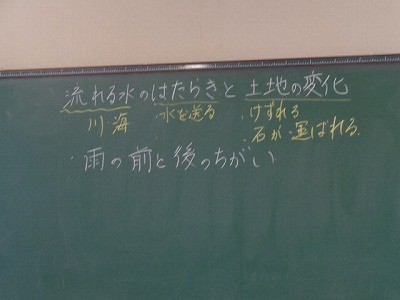 流れる水のはたらきと土地の変化
川 海 ・水を送る ・けずれる
・石が運ばれる
・雨の前と後のちがい